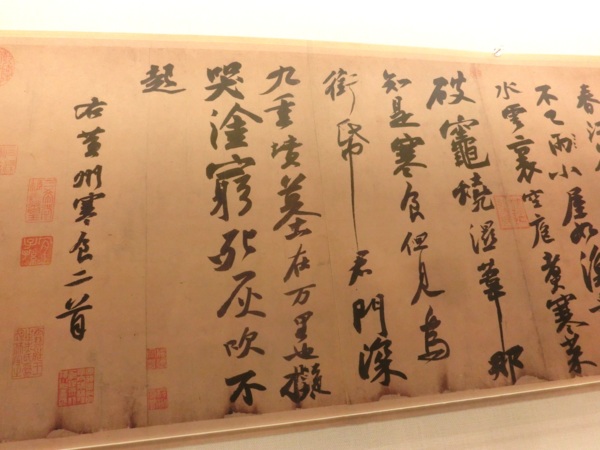 春江
不已雨小屋如漁
水雲裏空庖煮寒菜
破竈燒濕葦那
知是寒食但見烏
銜帋君門深
九重墳墓在万里也擬
哭塗窮死灰吹不
起
右黃州寒食二首